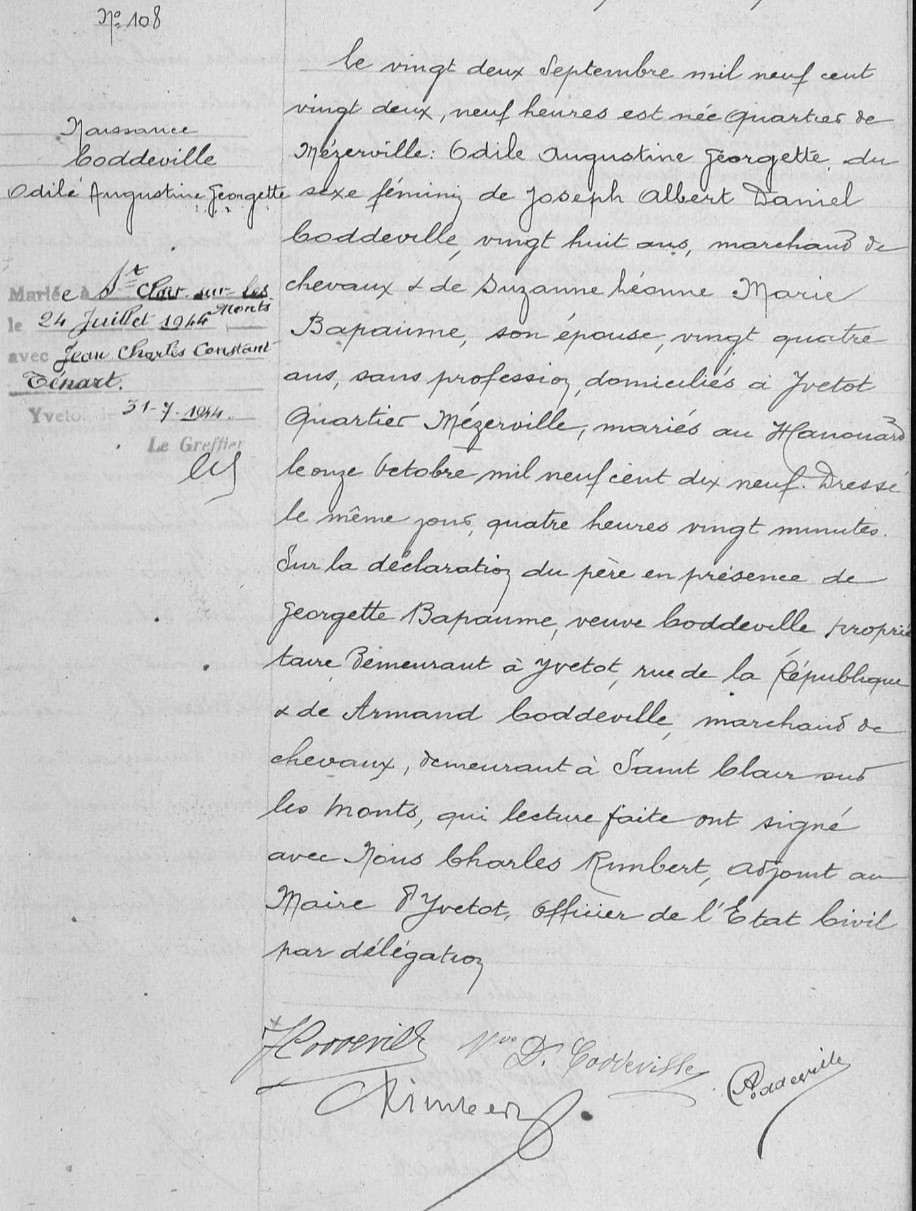 N° 108
Naissance
Coddeville
Odile Augustine Georgette
Mariée à St Clair-sur-les
Monts
le 24 Juillet 1944
avec Jean Charles Constant
Ténart.
Yvetot le 31-7-1944.
Le Greffier
Le vingt deux Septembre mil neuf cent
vingt deux, neuf heures est née Quartier de
Mézerville: Odile Augustine Georgette, du
sexe féminin de Joseph Albert Daniel
Coddeville, vingt huit ans, marchand de
chevaux & de Suzanne Léonne Marie
Bapaume, son épouse, vingt quatre
ans, sans profession, domiciliés à Yvetot
Quartier Mézerville, mariés au Hanouard
le onze Octobre mil neuf cent dix neuf. Dressé
le même jour, quatre heures vingt minutes.
Sur la déclaration du père en présence de
Georgette Bapaume, veuve Coddeville proprié
taire, Demeurant à Yvetot, rue de la République
& de Armand Coddeville, marchand de
chevaux, demeurant à Saint Clair sur
les Monts, qui lecture faite ont signé
avec Nous Charles Rimbert, adjoint au
Maire d'Yvetot, Officier de l'Etat Civil
par délégation
Coddeville Vve D. Coddeville Coddeville
Rimbert